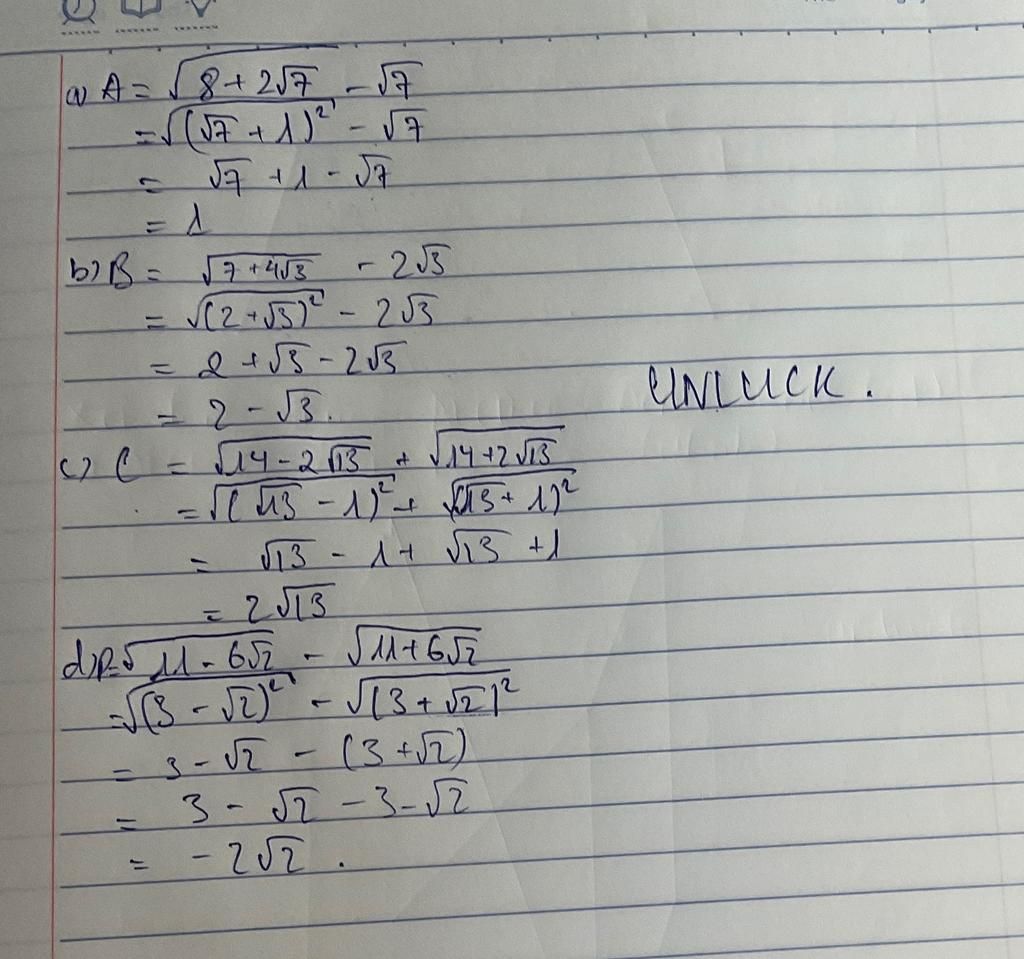 a) A = √(8 + 2√7) - √7
= √((√7 + 1)²) - √7
= √7 + 1 - √7
= 1
b) B = √(7 + 4√3) - 2√3
= √((2 + √3)²) - 2√3
= 2 + √3 - 2√3
= 2 - √3.
UNLUCK.
c) C = √(14 - 2√13) + √(14 + 2√13)
= √((√13 - 1)²) + √((√13 + 1)²)
= √13 - 1 + √13 + 1
= 2√13
d) D = √(11 - 6√2) - √(11 + 6√2)
= √((3 - √2)²) - √((3 + √2)²)
= 3 - √2 - (3 + √2)
= 3 - √2 - 3 - √2
= -2√2.